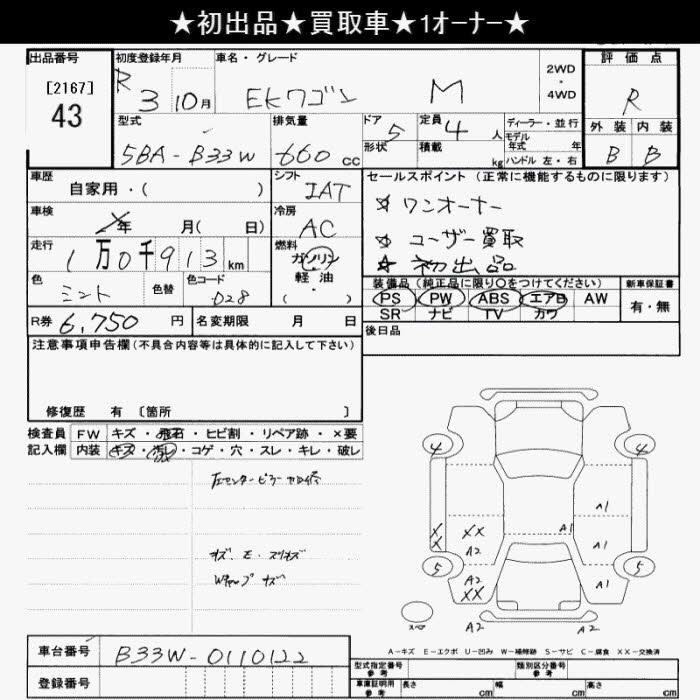 ★初出品★買取車★1オーナー★
出品番号
[2167]
43
初度登録年月
R 3 10月
車名・グレード
EKワゴン M
2WD
・
4WD
評価点
R
外装 内装
B B
型式
5BA-B33W
排気量
660 cc
ドア 5
形状
定員 4 人
積載 kg
ディーラー・並行
モデル年式 年
ハンドル 左・右
車歴
自家用・( )
シフト
IAT
車検
年 月( 日)
冷房
AC
走行
1万0千913 km
燃料
ガソリン
軽油
( ・ )
色
ミント
色替
色コード
D28
R券 6,750 円
名変期限 月 日
セールスポイント (正常に機能するものに限ります)
☆ ワンオーナー
☆ ユーザー買取
★ 初出品
装備品 (純正品に限り○をつけてください)
PS PW ABS エアB AW
SR ナビ TV カワ
新車保証書
有・無
後日品
注意事項申告欄(不具合内容等は具体的に記入して下さい)
修復歴 有 〔箇所 〕
検査員記入欄
FW キズ・飛石・ヒビ割・リペア跡・×要
内装 キズ・汚レ・コゲ・穴・スレ・キレ・破レ
左センターピラー
キズ・E・スリキズ
4 4
A1
XX A1 A1
A2
5 5
A2 A1
XX
スペア A2 A2
A-キズ E-エクボ U-凹み W-補修跡 S-サビ C-腐食 XX-交換済
車台番号 B33W-0110122
登録番号
型式指定番号 参考
類別区分番号 参考
車庫証明用 参考 長さ cm 幅 cm 高さ cm